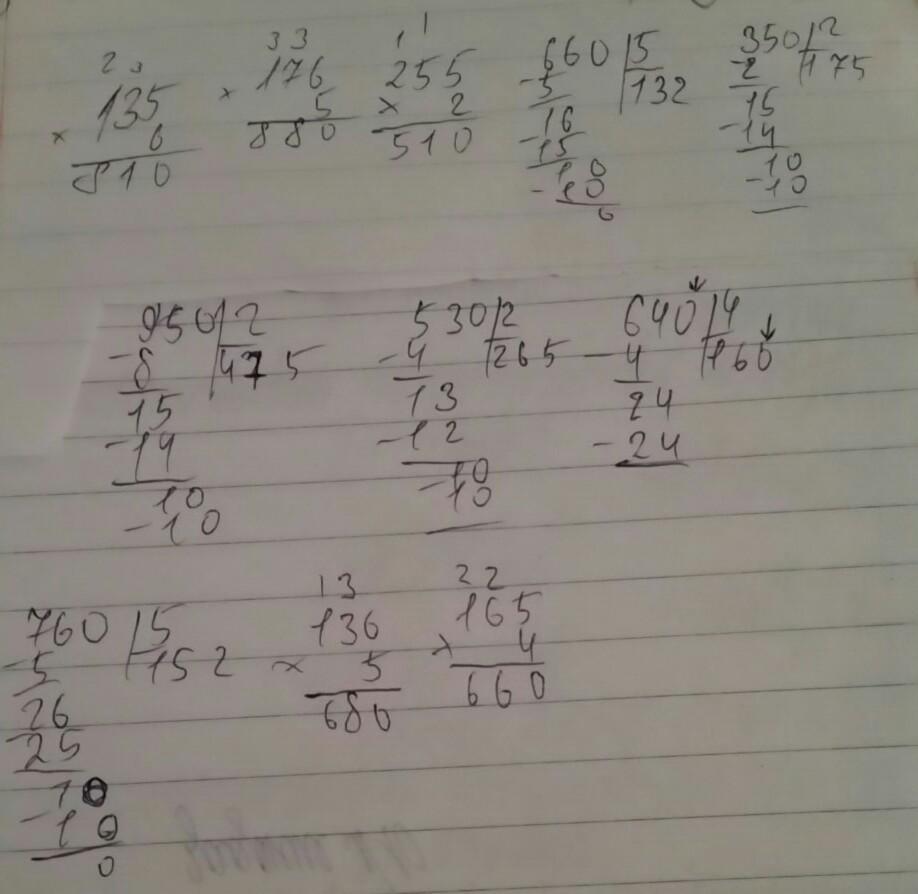 2 3 3 3 1 1
135 176 255 660 5 350 2
× 6 × 5 × 2 -5 132 -2 175
810 880 510 16 15
-15 -14
10 10
-10 -10
0
950 2 530 2 640 4
-8 475 -4 265 -4 160
15 13 24
-14 -12 -24
10 10
-10 -10
1 3 2 2
760 5 136 165
-5 152 × 5 × 4
26 680 660
-25
10
-10
0